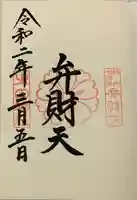 弁財天
令和二年三月五日